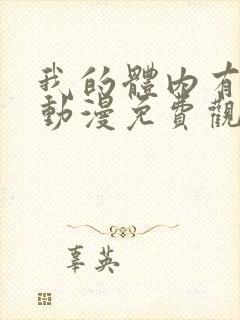 我的體內有
動漫免費觀
辜英